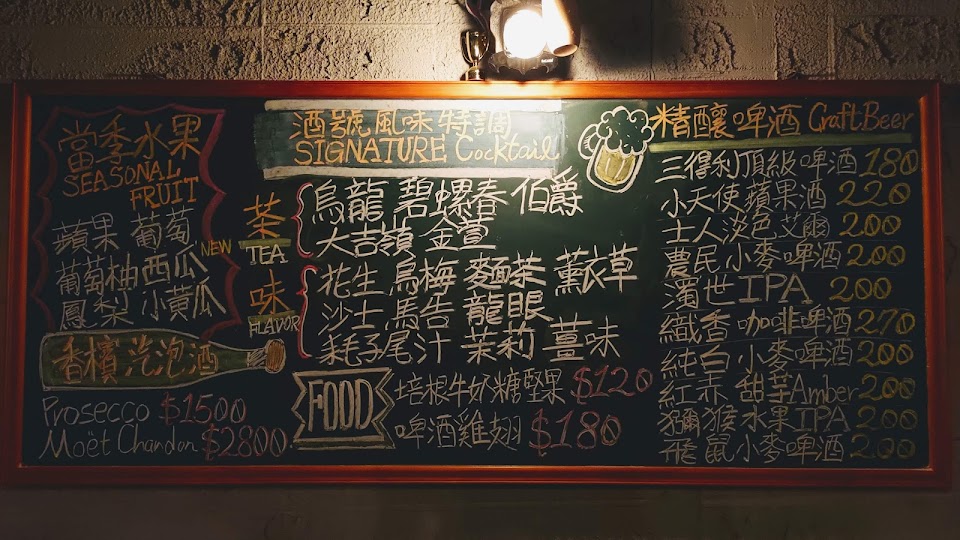 當季水果
SEASONAL
FRUIT
蘋果 葡萄
葡萄柚 西瓜
鳳梨 小黃瓜
NEW
香檳 汽泡酒
Prosecco $1500
Moët Chandon $2800
酒號風味特調
SIGNATURE Cocktail
茶
TEA
烏龍 碧螺春 伯爵
大吉嶺 金萱
味
FLAVOR
花生 烏梅 麵茶 薰衣草
沙士 馬告 龍眼
耗子尾汁 茉莉 薑味
FOOD
培根牛奶糖堅果 $120
啤酒雞翅 $180
精釀啤酒 Craft Beer
三得利頂級啤酒 180
小天使蘋果酒 220
士人淡色艾爾 200
農民小麥啤酒 200
濁世IPA 200
纖香咖啡啤酒 270
純白小麥啤酒 200
紅赤甜芋Amber 200
獼猴水果IPA 200
飛鼠小麥啤酒 200